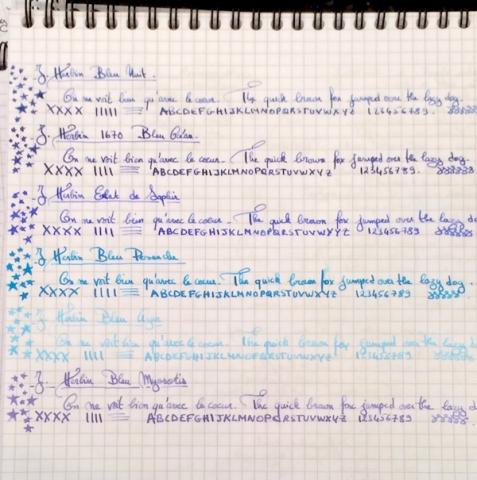 J. Herbin Bleu Nuit.
On ne voit bien qu'avec le cœur. The quick brown fox jumped over the lazy dog.
XXXX IIIII ABCDEFGHIJKLMNOPQRSTUVWXYZ 123456789.
J. Herbin 1670 Bleu Océan.
On ne voit bien qu'avec le coeur. The quick brown fox jumped over the lazy dog.
XXXX IIII ABCDEFGHIJKLMNOPQRSTUVWXYZ 123456789.
J. Herbin Eclat de Saphir
On ne voit bien qu'avec le coeur. The quick brown fox jumped over the lazy do
XXXX IIII ABCDEFGHIJKLMNOPQRSTUVWXYZ 123456789
J. Herbin Bleu Pervenche
On ne voit bien qu'avec le coeur. The quick brown fox jumped over the lazy dog.
XXXX IIII ABCDEFGHIJKLMNOPQRSTUVWXYZ 123456789
J. Herbin Bleu Azur
On ne voit bien qu'avec le coeur. The quick brown fox jumped over the lazy do
XXXX IIII ABCDEFGHIJKLMNOPQRSTUVWXYZ 123456789
J. Herbin Bleu Myosotis
On ne voit bien qu'avec le coeur. The quick brown fox jumped over the lazy d
XXXX IIII ABCDEFGHIJKLMNOPQRSTUVWXYZ 123456789